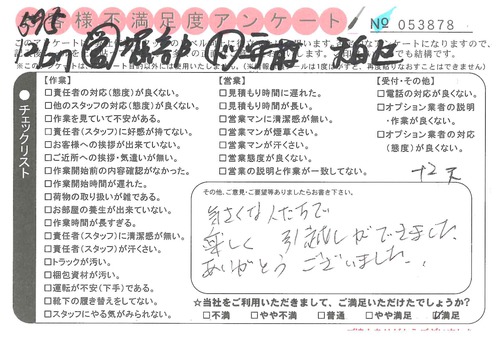 お客様不満足度アンケート
№ 053878
チェックリスト
【作業】
□責任者の対応(態度)が良くない。
□他のスタッフの対応(態度)が良くない。
□作業を見ていて不安がある。
□責任者(スタッフ)に好感が持てない。
□お客様への挨拶が出来ていない。
□ご近所への挨拶・気遣いが無い。
□作業開始前の内容確認がなかった。
□作業開始時間が遅れた。
□荷物の取り扱いが雑である。
□お部屋の養生が出来ていない。
□作業時間が長すぎる。
□責任者(スタッフ)に清潔感が無い。
□責任者(スタッフ)が汗くさい。
□トラックが汚い。
□梱包資材が汚い。
□運転が不安(下手)である。
□靴下の履き替えをしてない。
□スタッフにやる気がみられない。
【営業】
□見積もり時間に遅れた。
□見積もり時間が長い。
□営業マンに清潔感が無い。
□営業マンが煙草くさい。
□営業マンが汗くさい。
□営業態度が良くない。
□営業の説明と作業が一致してない。
【受付・その他】
□電話の対応が良くない。
□オプション業者の説明
・作業が良くない。
□オプション業者の対応
(態度)が良くない。
その他、ご意見・ご要望等ありましたらお書き下さい。
気さくな人たちで
楽しく 引越しができました。
ありがとう ございました。
☆当社をご利用いただきまして、ご満足いただけたでしょうか?
□不満 □やや不満 □普通 □やや満足 ☑満足